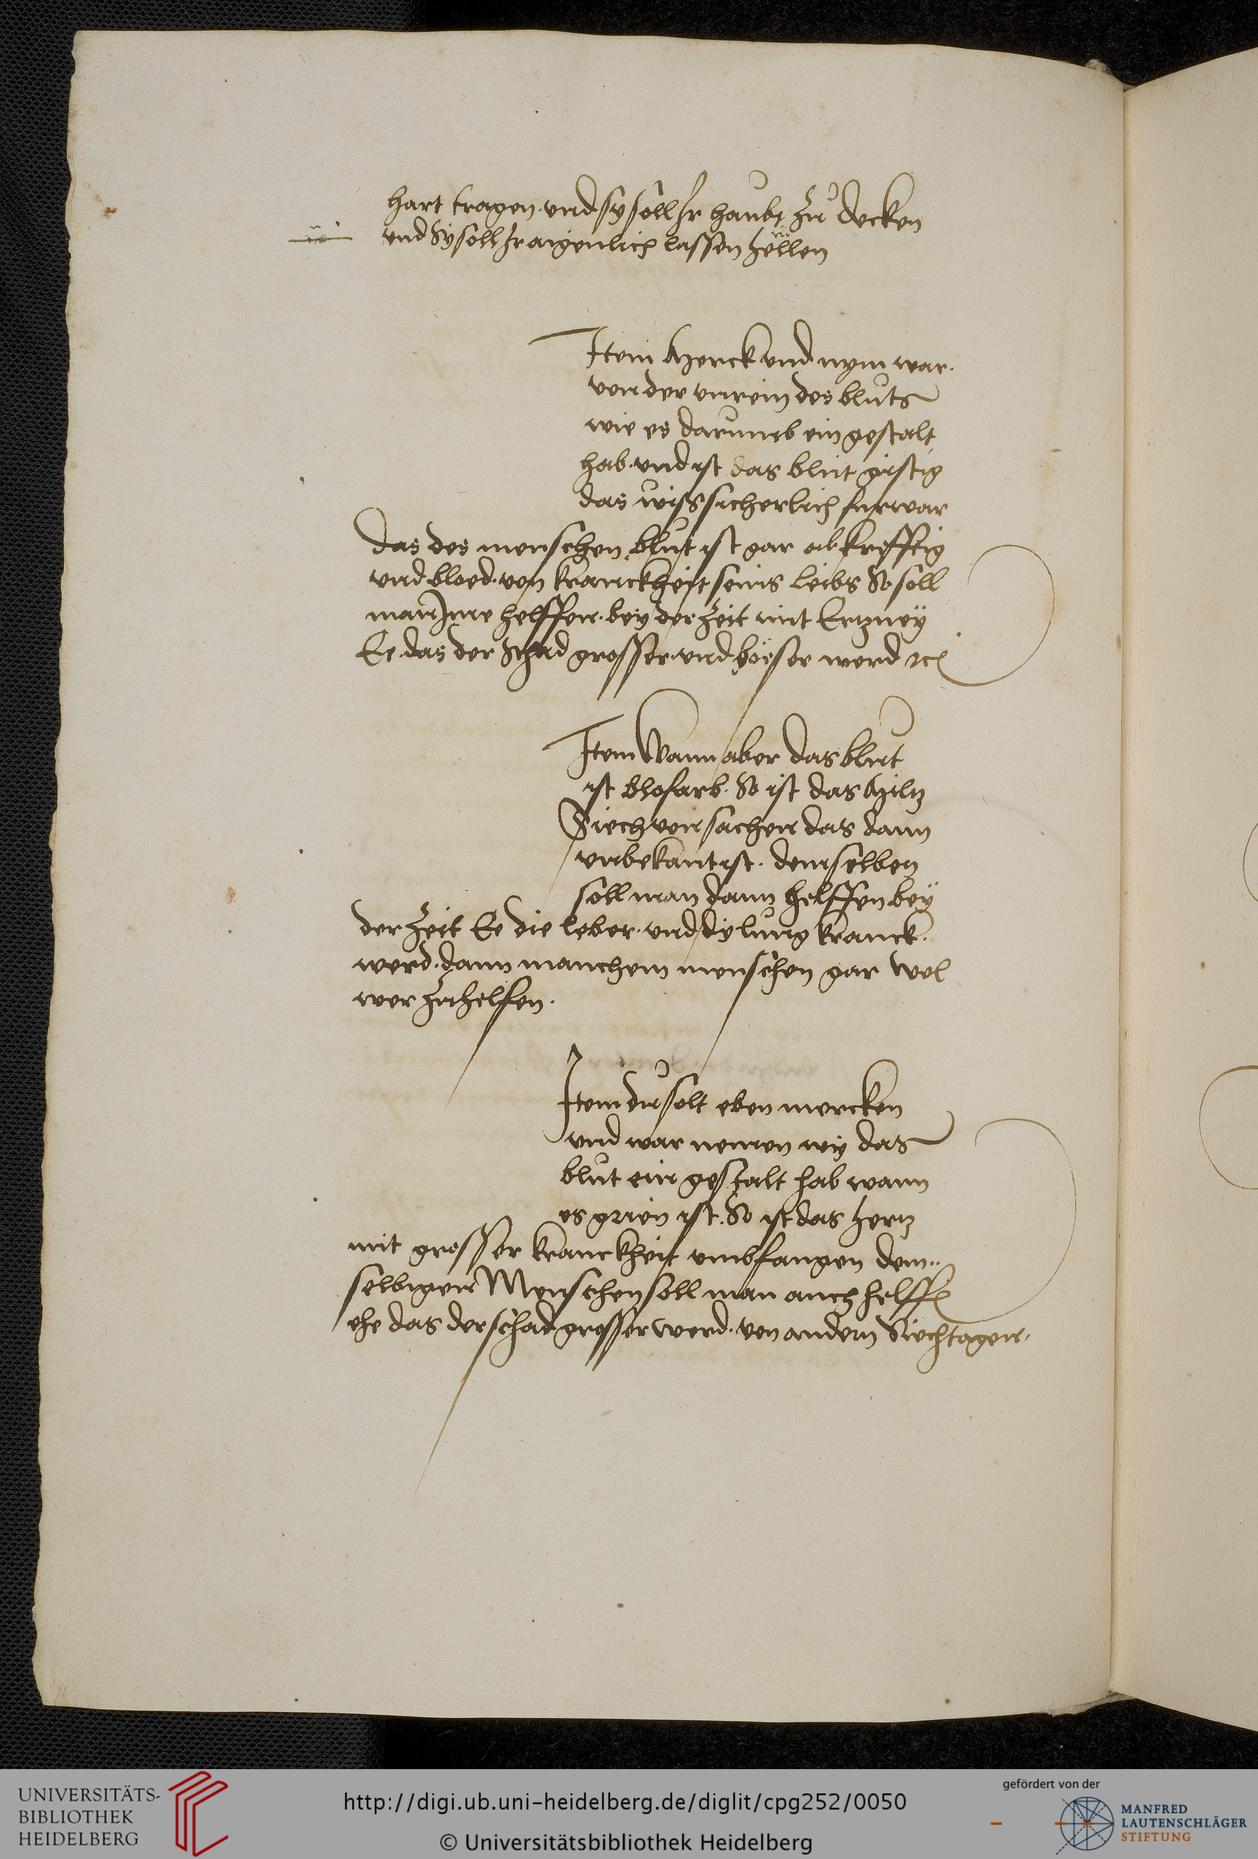 hart tragen vnd sy soll Jr haubt zu decken
vnd Sy soll Jr aigenlich lassen zellen
Item Merck vnd nym war.
von der vnrein des bluts
wie es darumb ein gestalt
hab. vnd ist das blut gifftig
das wiss sicherlich furwar
Das des menschen blut ist gar abkrefftig
vnd bloed. von kranckheit seins leibs So soll
man Jme helffen. bey der Zeit mit Ertzney
Ee das der Schad grosser. vnd böeser werd
Item Wann aber das blut
ist blofarb. So ist das Miltz
Siech von sachen das dann
vnbekant ist. demselben
soll man dann helffen bey
der Zeit Ee die leber. vnd dy lung kranck.
werd. dann manchem menschen gar wol
wer zu helfen.
Item du solt eben mercken
vnd war nemen wy das
blut ein gestalt hab wann
es grien ist. So ist das hertz
mit grosser kranckheit vmbfangen dem..
selbigen Menschen soll man auch helffen
ehe das der schad grosser werd. von andern Siechtagen.
UNIVERSITÄTS-
BIBLIOTHEK
HEIDELBERG
http://digi.ub.uni-heidelberg.de/diglit/cpg252/0050
© Universitätsbibliothek Heidelberg
gefördert von der
MANFRED
LAUTENSCHLÄGER
STIFTUNG